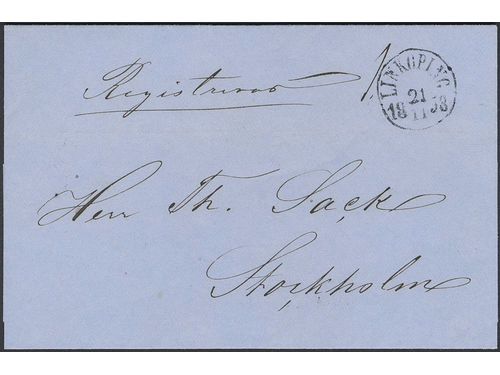 Registreras
LINKÖPING
21
18 11 58
Herr Th. Sack
Stockholm